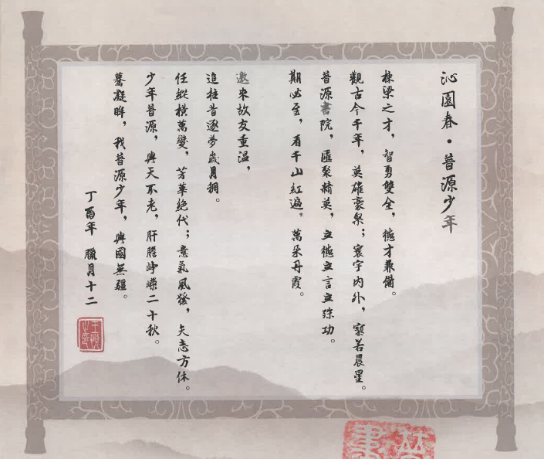 沁園春·昔源少年
棟梁之才，智勇雙全，德才兼備。
觀古今千年，英雄豪傑；寰宇內外，若晨星。
昔源書院，匯聚精英，立德立言立殊功。
期必至，看千山紅遍，萬朵丹霞。
邀來故友重溫，
追往昔逐夢歲月稠。
任縱橫萬變，芳華絕代；意氣風發，矢志方休。
少年昔源，與天不老，肝膽崢嶸二十秋。
驀凝眸，我昔源少年，與國無疆。
丁酉年 臘月十二